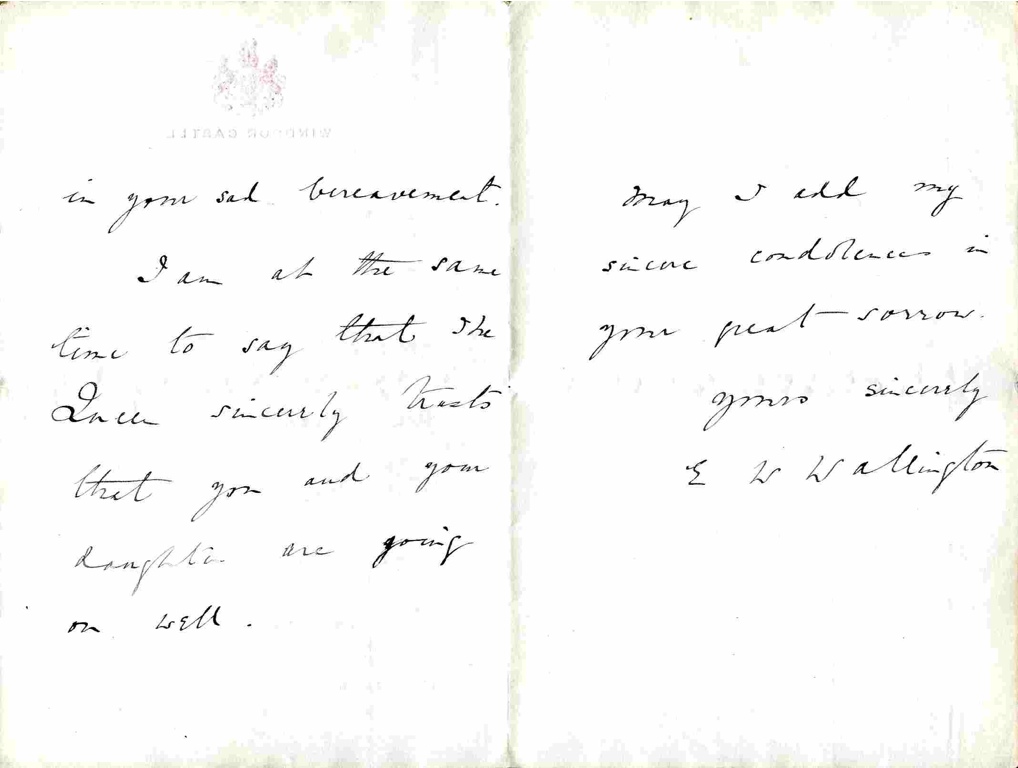 WINDSOR CASTLE
in your sad bereavement.
I am at the same
time to say that The
Queen sincerely trusts
that you and your
daughter are going
on well.
May I add my
sincere condolences in
your great sorrow.
yours sincerely
E W Wallington